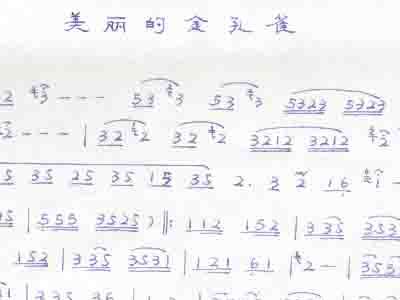 美丽的金孔雀
2 3 - - - 53 3 53 3 5323 5323
2 - - - | 32 2 32 2 3212 3212 2
5 35 25 35 15 35 2. 3 2 16 1 -
35 | 555 3525 ) ‖: 112 152 | 335 353
152 | 335 3531 | 121 61 | 2 - | 3531